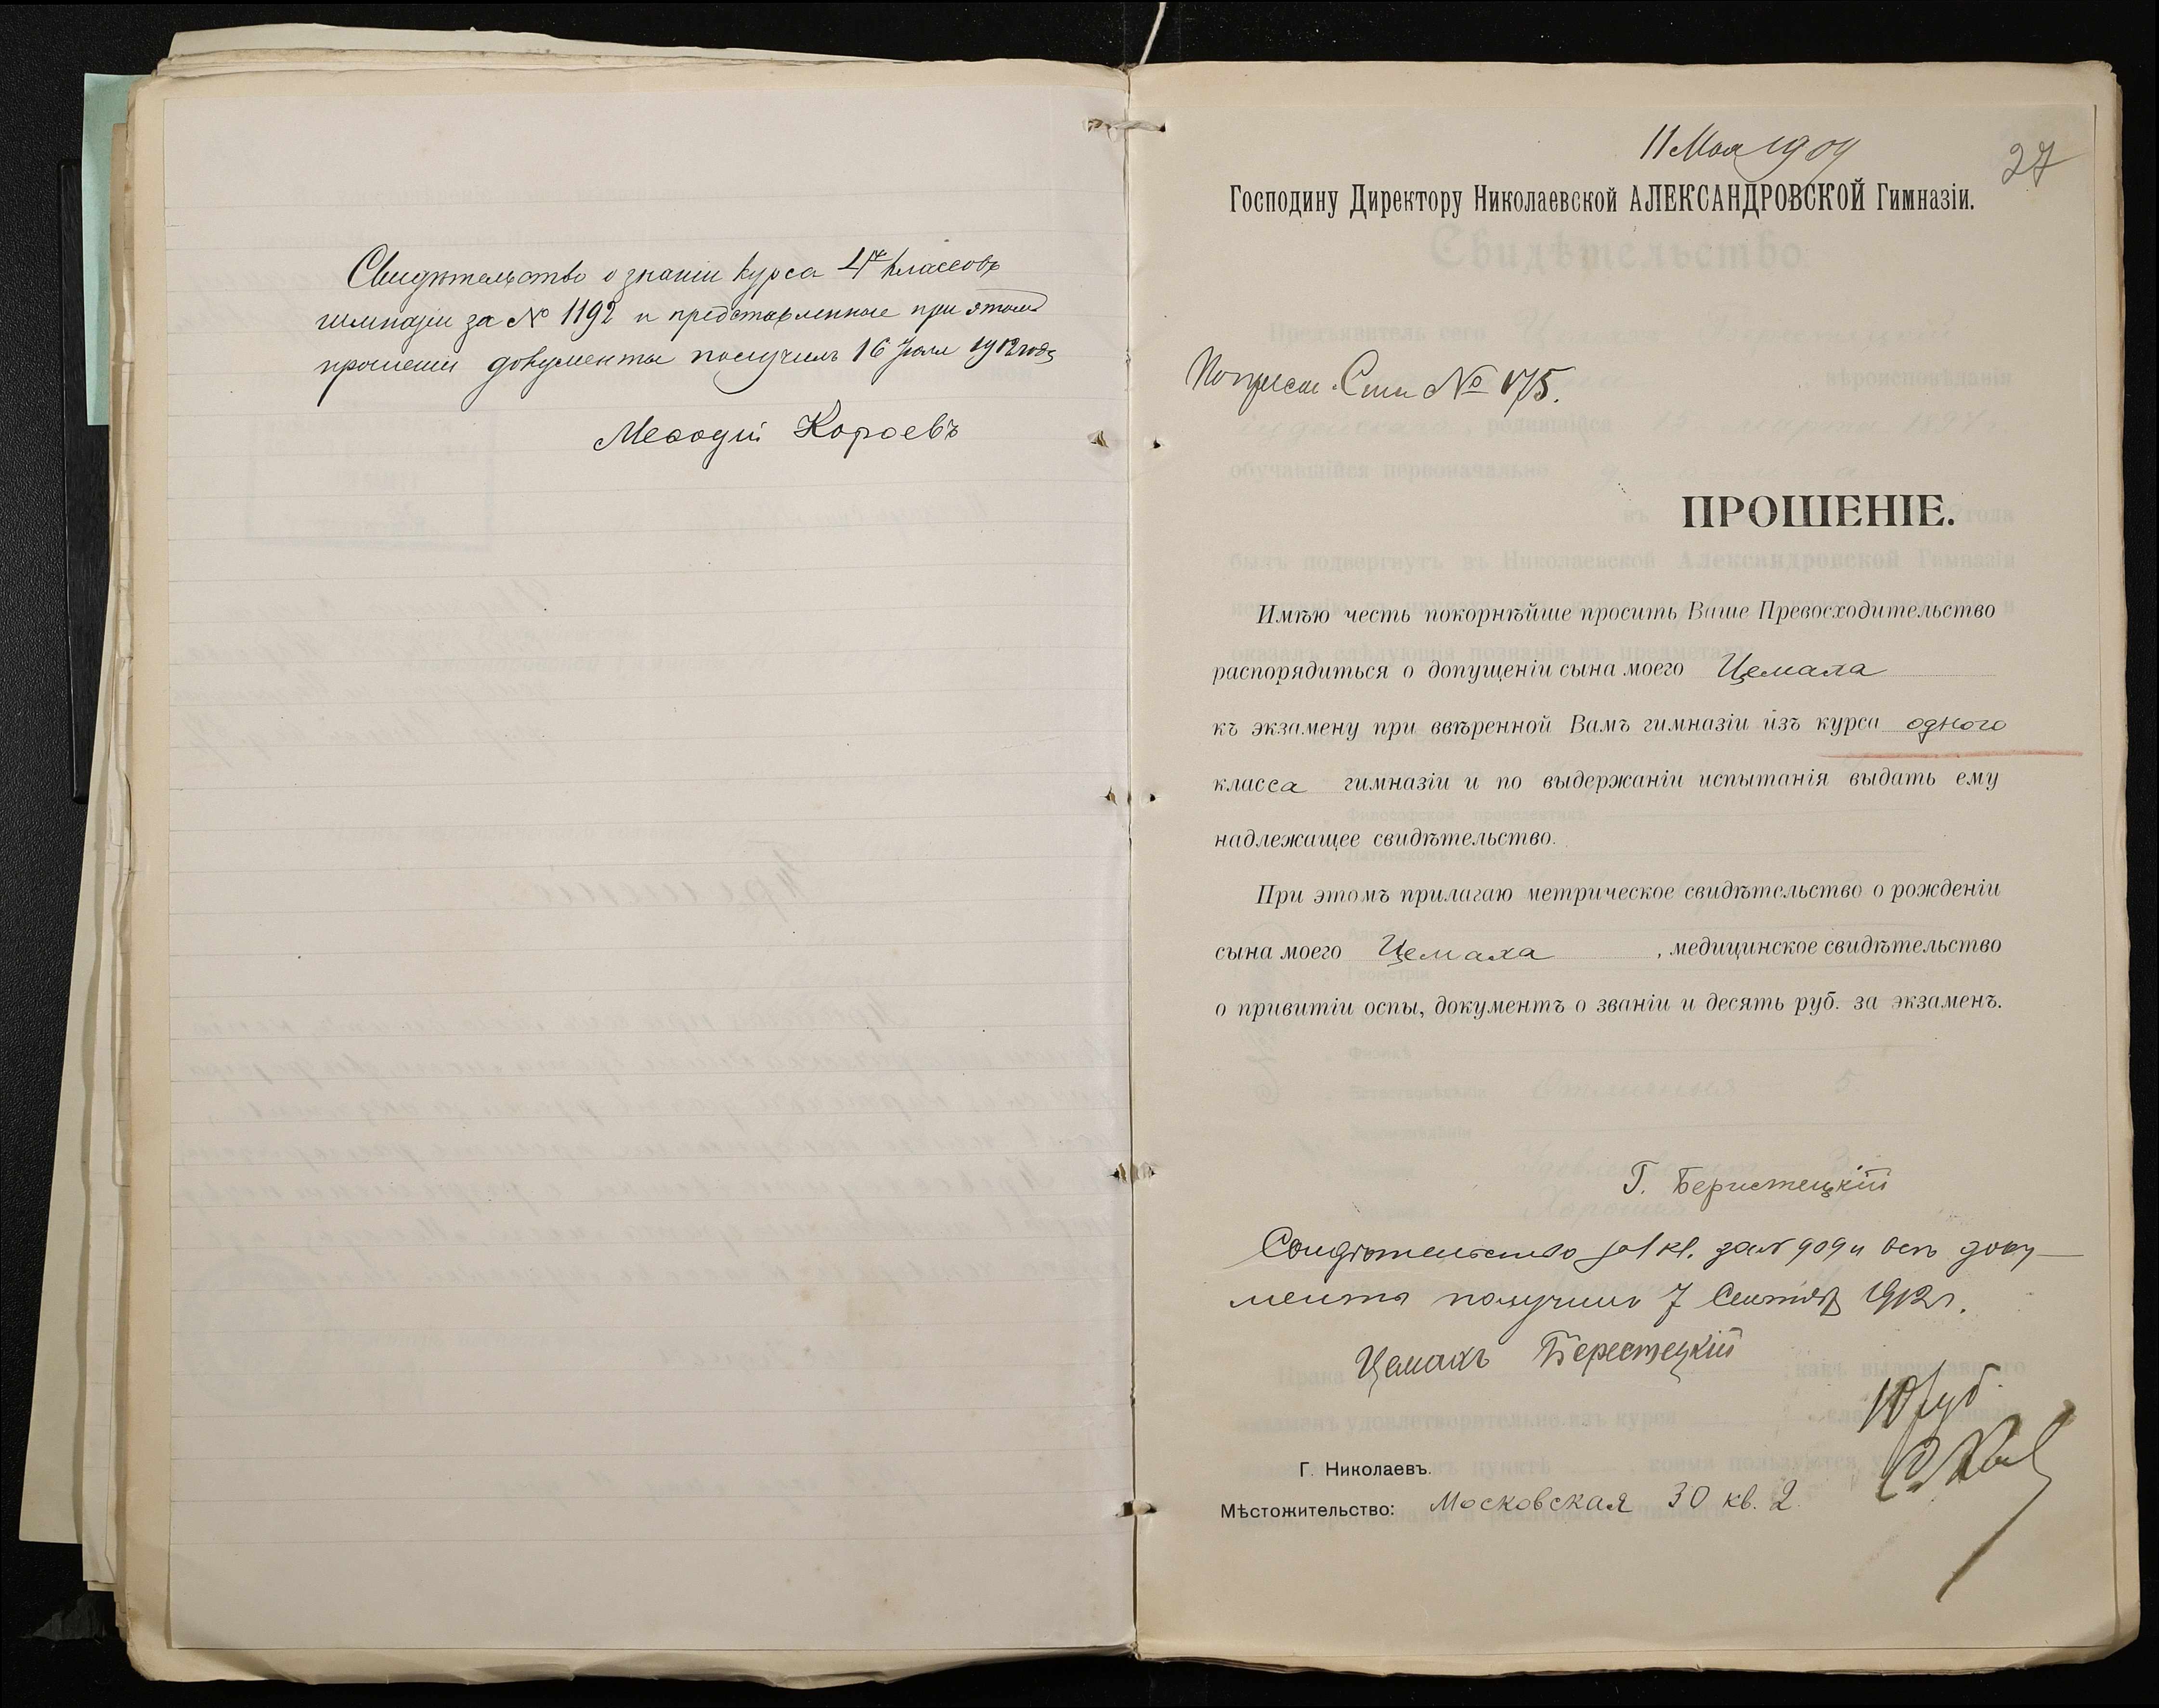 Свидѣтельство о знаніи курса 4х классовъ
гимназіи за № 1192 и представленные при этомъ
прошеніи документы получилъ 16 Іюля 1912 года
Меѳодій Короевъ
11 Мая 1909
27
Господину Директору Николаевской АЛЕКСАНДРОВСКОЙ Гимназіи.
№ 175.
ПРОШЕНІЕ.
Имѣю честь покорнѣйше просить Ваше Превосходительство
распорядиться о допущеніи сына моего Цемаха
къ экзамену при ввѣренной Вамъ гимназіи изъ курса одного
класса гимназіи и по выдержаніи испытанія выдать ему
надлежащее свидѣтельство.
При этомъ прилагаю метрическое свидѣтельство о рожденіи
сына моего Цемаха, медицинское свидѣтельство
о привитіи оспы, документъ о званіи и десять руб. за экзаменъ.
Г. Беристецкій
Свидѣтельство за 1 кл. за № 909 и всѣ доку-
менты получилъ 7 Сентяб 1912 г.
Цемахъ Берестецкій
10 руб.
Г. Николаевъ.
Мѣстожительство: Московская 30 кв. 2